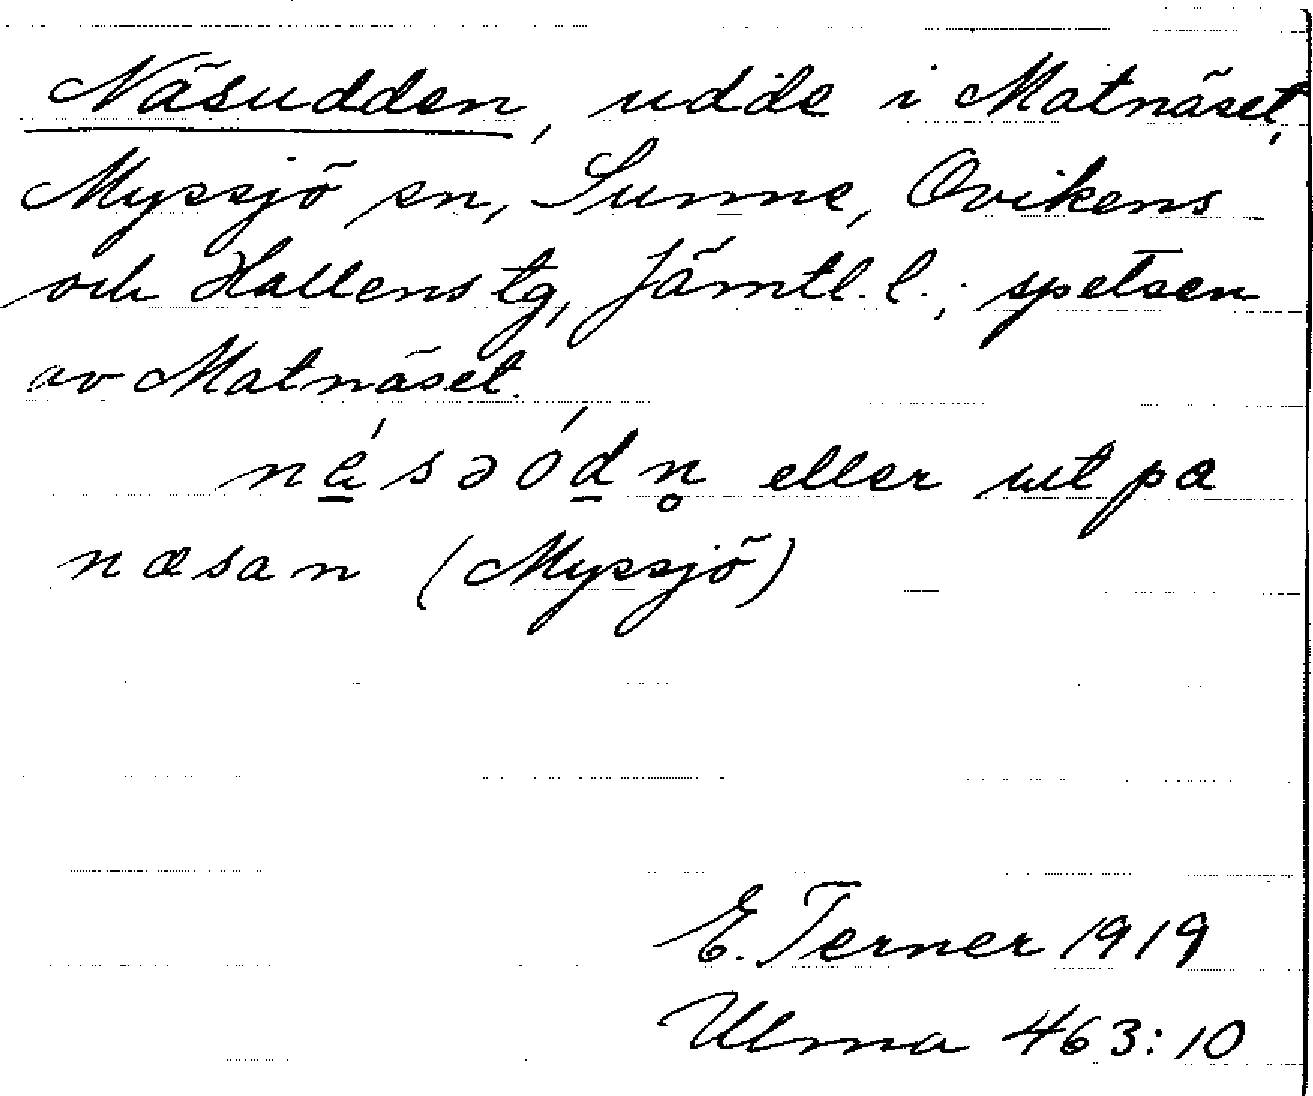 Näsudden, udde i Matnäset,
Myssjö sn, Sunne, Ovikens
och Hallens tg, Jämtl. l.; spetsen
av Matnäset.
né̱səóḏn̥ eller ut pa
næsan (Myssjö)
E. Terner 1919
Ulma 463:10